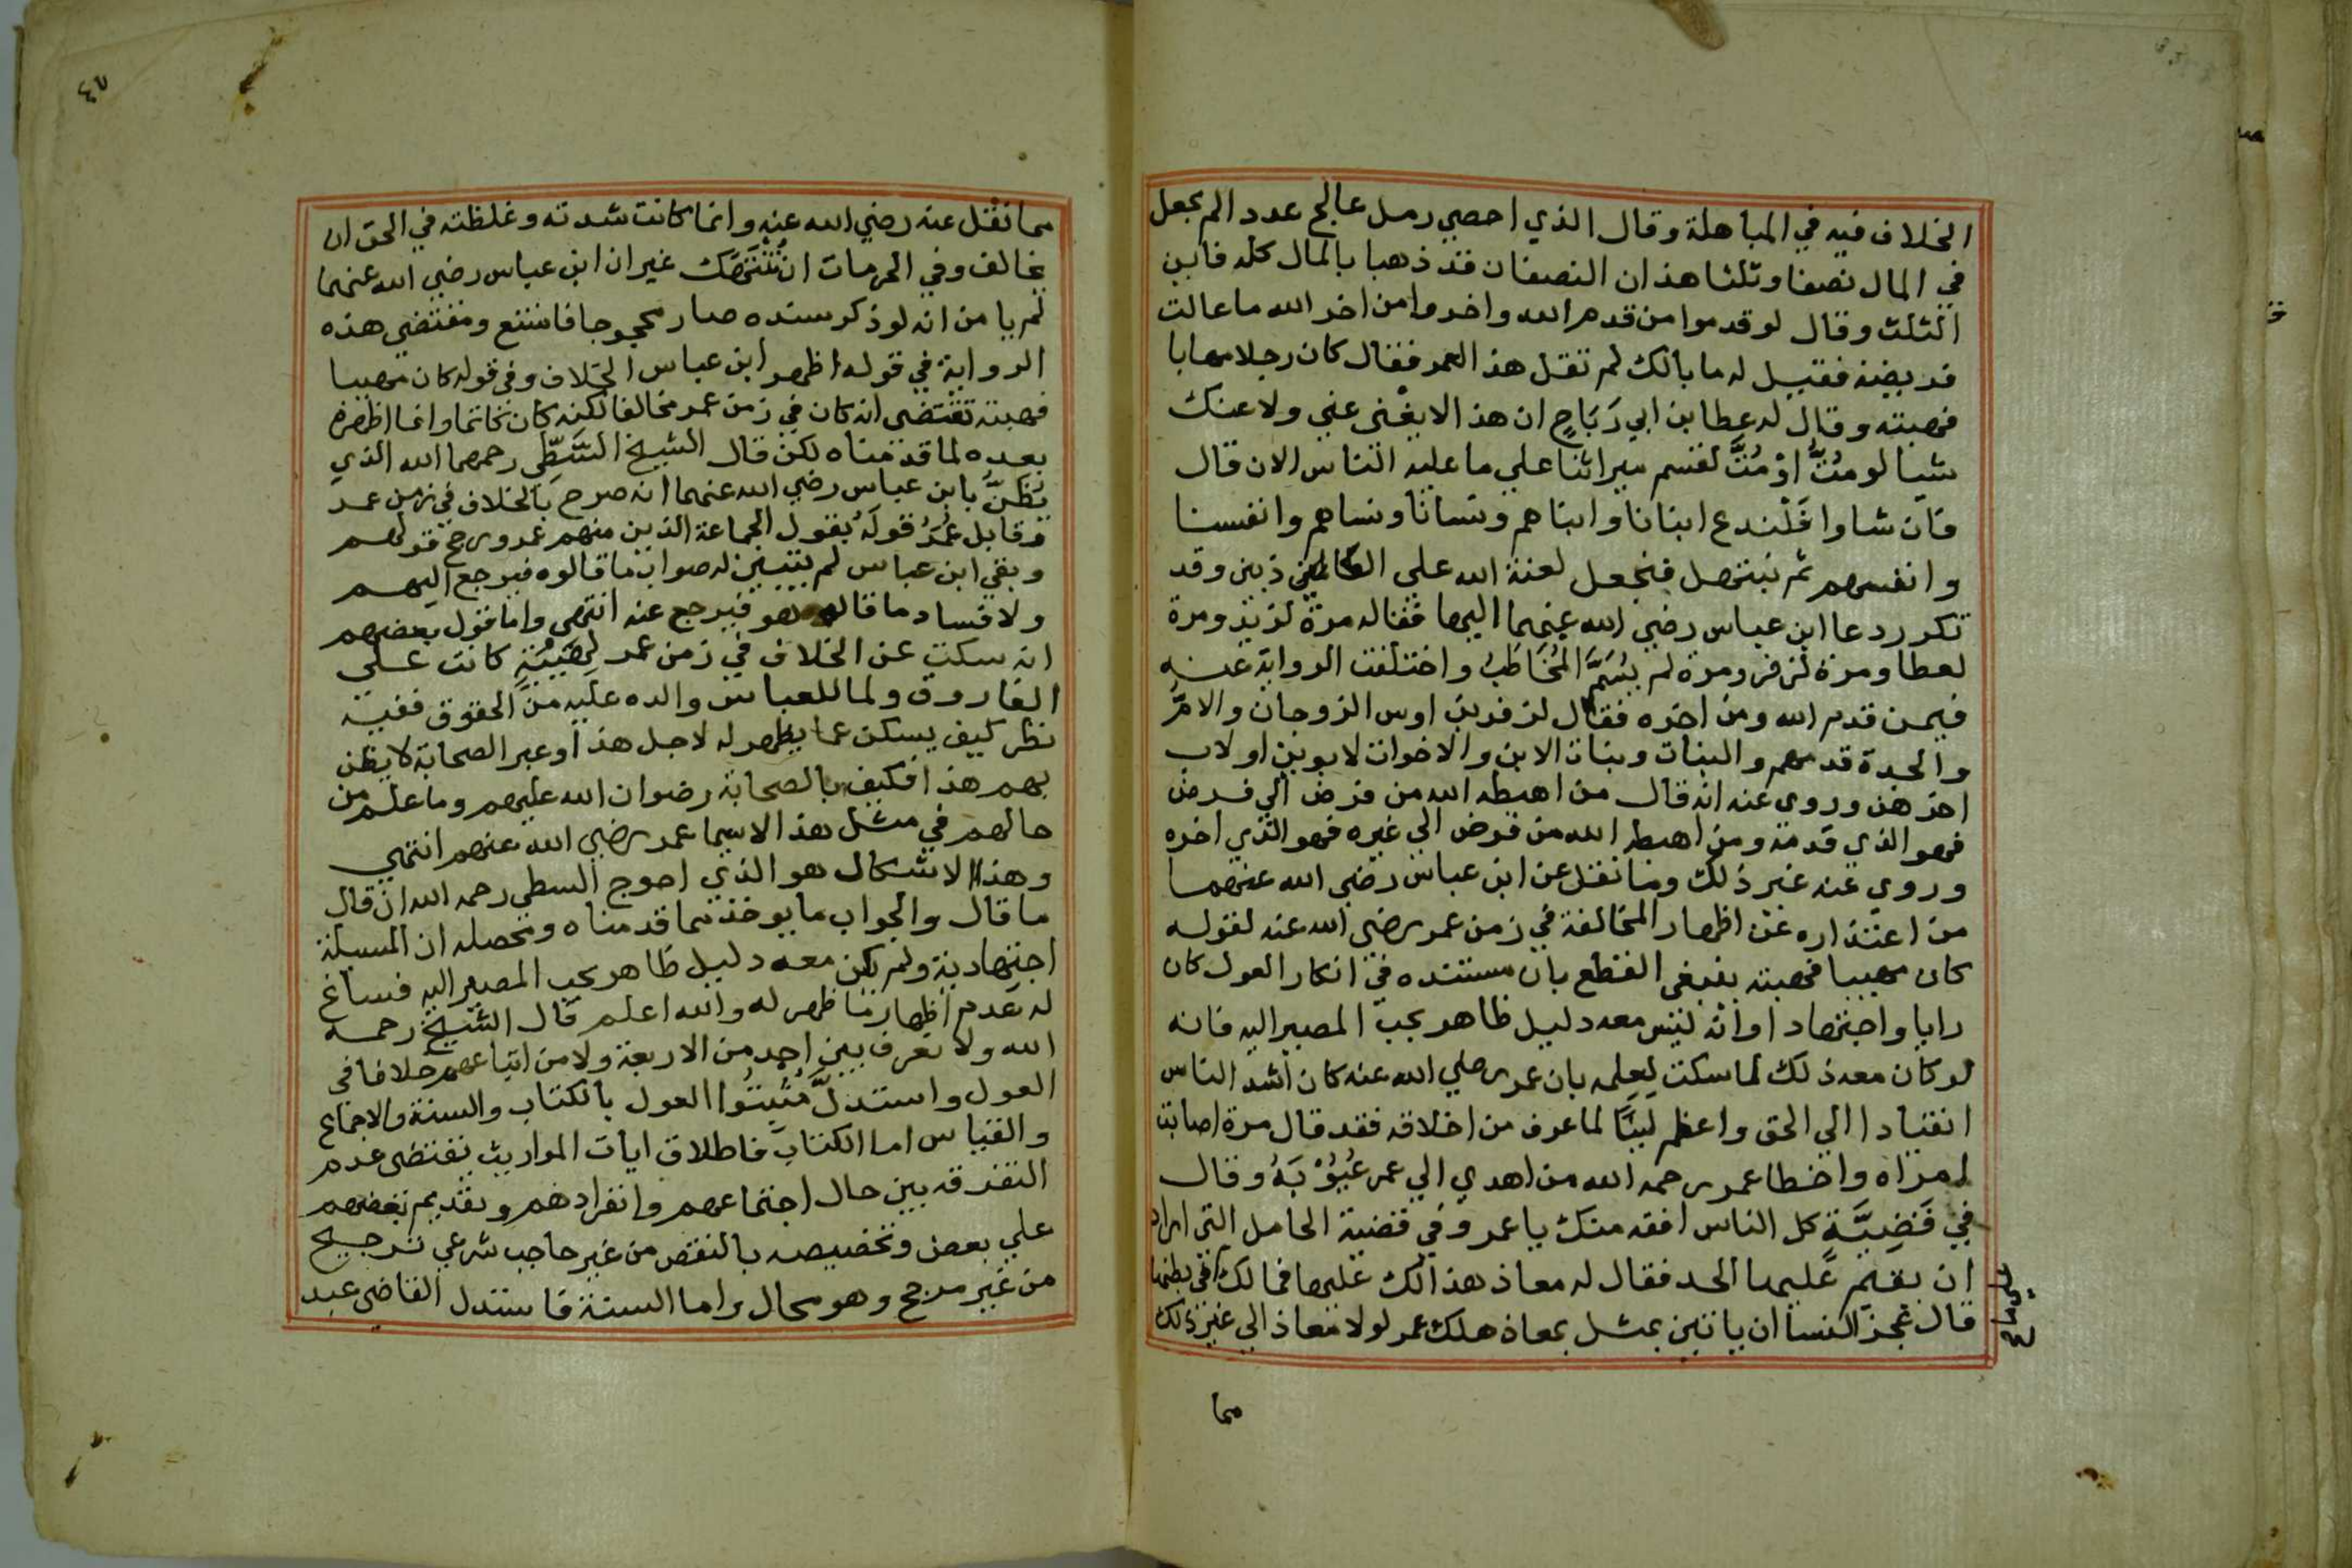 الخلاف فيه في المباهلة وقال الذي احصي رمل عالج عدد الم يجعل
في المال نصفا وثلثا هذان النصفان قد ذهبا بالمال كله فاين
الثلث وقال لو قدموا من قدم الله واخروا من اخر الله ما عالت
فريضة فقيل له ما بالك لم تقل هذا لعمر فقال كان رجلا مهابا
فهبته وقال له عطا بن ابي رَبَاحٍ ان هذا لا يغْني عني ولا عنك
شيا لو مُتُّ اوْ مُتَّ لقسم ميراثنا علي ما عليه الناس الان قال
فان شاوا فَلْندع ابنانا وابناهم ونسانا ونساهم وانفسنا
وانفسهم ثم نبتهل فنجعل لعنة الله علي الكاذبين وقد
تكرر دعا ابن عباس رضي الله عنهما اليها فقاله مرة لزيد ومرة
لعطا ومرة لزفر ومرة لم يُسَمَّ المُخَاطَبُ واختلفت الرواية عنه
فيمن قدم الله ومن اخره فقال لزفر بن اوس الزوجان والامُّ
والجدة قدمهم والبنات وبنات الابن والاخوات لابوين او لاب
اخرهن وروي عنه انه قال من اهبطه الله من فرض الي فرض
فهو الذي قدمه ومن اهبطه الله من فرض الي غيره فهو الذي اخره
وروي عنه غير ذلك وما نقل عن ابن عباس رضي الله عنهما
من اعتذاره عن اظهار المخالفة في زمن عمر رضي الله عنه لقوله
كان مهيبا فهبته ينبغي القطع بان مستنده في انكار العول كان
رايا واجتهادا وانه ليس معه دليل ظاهر يجب المصير اليه فانه
لو كان معه ذلك لما سكت لِعِلمه بان عمر رضي الله عنه كان اشد الناس
انقيادا الي الحق واعظم لينًا لما عرف من اخلاقه فقد قال مرة اصابت
امراه واخطا عمر رحم الله من اهدي الي عمر عُيُوْبَهُ وقال
في قَضِيَّةٍ كل الناس افقه منك يا عمر وفي قضية الحامل التي اراد
ان يقيم عليها الحد فقال له معاذ هذا لك عليها فما لك في بطنها
قال عجز النسا ان ياتين بمثل معاذ هلك عمر لولا معاذ الي غير ذلك
مما
٤٧
مما نقل عنه رضي الله عنه وانما كانت شدته وغلظته في الحق ان
يخالف وفي الحرمات ان تُنْتَهَك غير ان ابن عباس رضي الله عنهما
لم يامن انه لو ذكر سنده صار محجوجا فامتنع ومقتضي هذه
الرواية في قوله اظهر ابن عباس الخلاف وفي قوله كان مهيبا
فهبته تقتضي انه كان في زمن عمر مخالفا لكنه كان كاتما وانما اظهره
بعده لما قدمناه لكن قال الشيخ السَّطّي رحمهما الله الذي
يَظُنُّ بابن عباس رضي الله عنهما انه صرح بالخلاف في زمن عمر
وقابل عُمَرُ قولَهُ بقول الجماعة الذين منهم عمر ورجح قولهم
وبقي ابن عباس لم يتبين له صواب ما قالوه فيرجع اليهم
ولا فساد ما قاله هو فيرجع عنه انتهي واما قول بعضهم
انه سكت عن الخلاف في زمن عمر كانت علي
الفاروق ولما للعباس والده عليه من الحقوق ففيه
نظر كيف يسكت عما يظهر له لاجل هذا وغير الصحابة لا يظن
بهم هذا فكيف بالصحابة رضوان الله عليهم وما علم من
حالهم في مثل هذا لاسيما عمر رضي الله عنهم انتهي
وهذا الاشكال هو الذي احوج السطي رحمه الله ان قال
ما قال والجواب ما يوخذ مما قدمناه ومحصله ان المسيلة
اجتهادية ولم يكن معه دليل ظاهر يجب المصير اليه فساغ
له عدم اظهار ما ظهر له والله اعلم قال الشيخ رحمه
الله ولا نعرف بين احد من الاربعة ولا من اتباعهم خلافا في
العول واستدلَّ مُثبتُوا العول بالكتاب والسنة والاجماع
والقياس اما الكتاب فاطلاق ايات المواريث يقتضي عدم
التفرقه بين حال اجتماعهم وانفرادهم وتقديم بعضهم
علي بعض وتخصيصه بالنقص من غير حاجب شرعي ترجيح
من غير مرجح وهو محال واما السنة فاستدل القاضي عبد